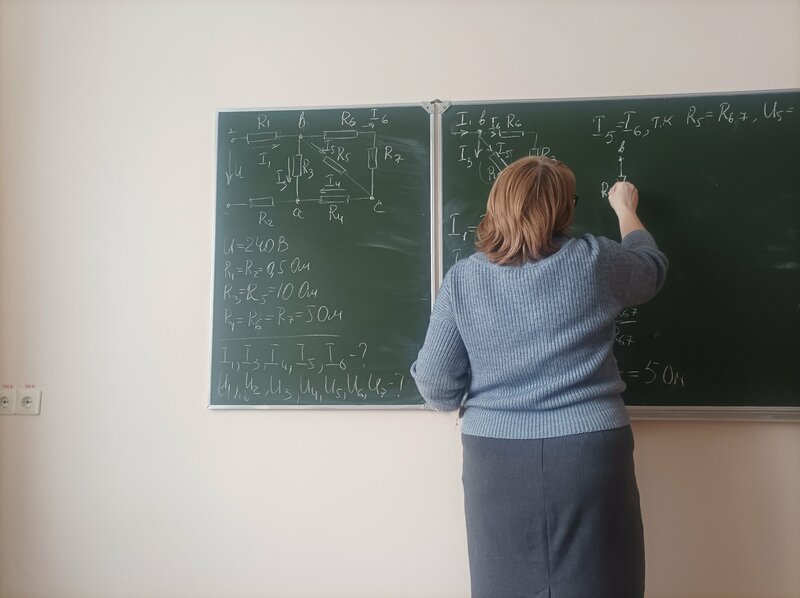 R1 b R6 I6
I1 I5 R5 R7
U I3 R3 I4
R2 a R4 c
U=240В
R1=R2=0,5 Ом
R3=R5=10 Ом
R4=R6=R7=5 Ом
I1, I3, I4, I5, I6 - ?
U1, U2, U3, U4, U5, U6, U7 - ?
I1 b I6 R6
I3 I5
I1=
I5=I6, т.к. R5=R6,7, U5=
b
R
R67
= 5 Ом